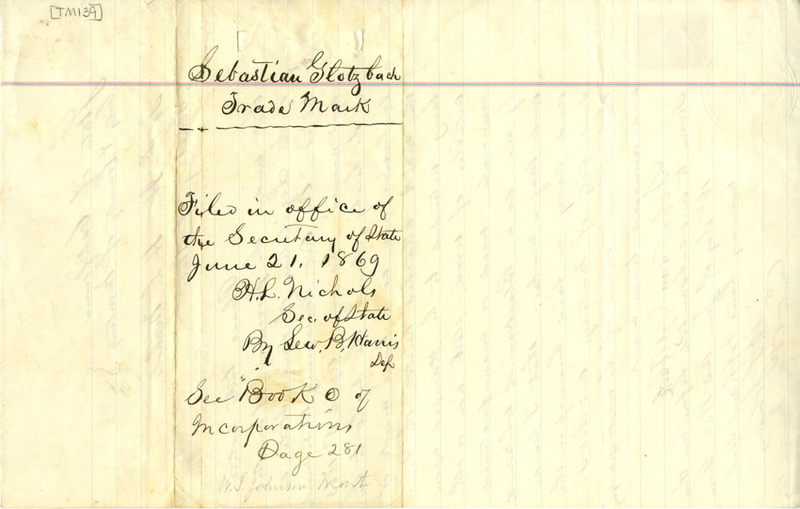 [TM139]
Sebastian Glotzbach
Trade Mark
Filed in office of
the Secretary of State
June 21, 1869
H. L. Nichols
Sec. of State
By Lew. B. Harris
Dep
See "Book O of
Incorporations
Page 281
W. S. Johnson